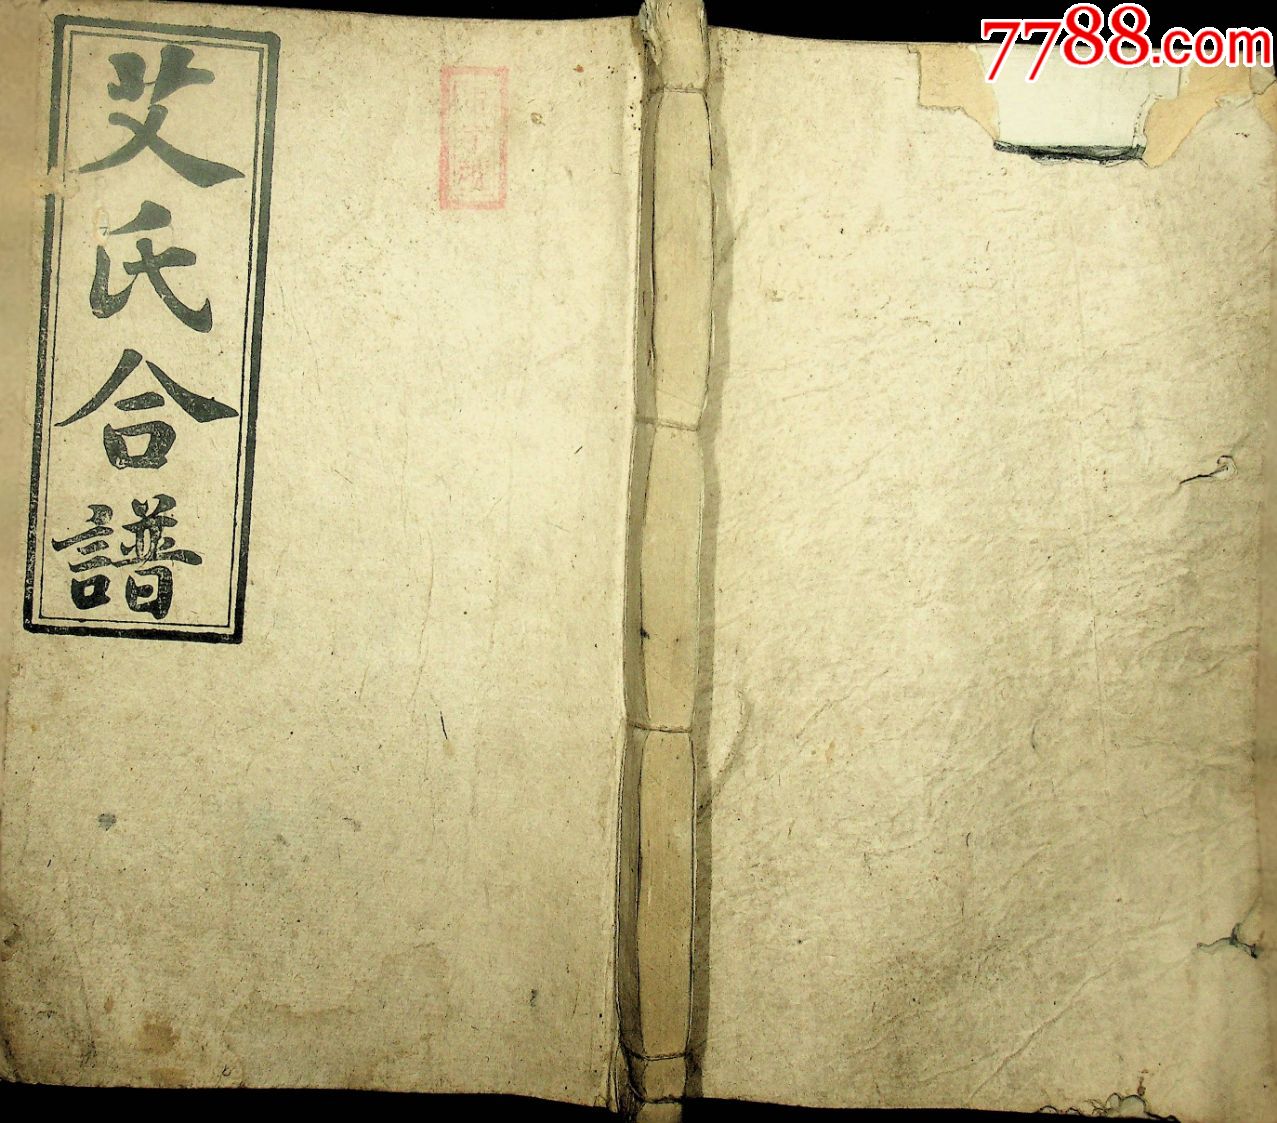 艾氏合譜
7788.com